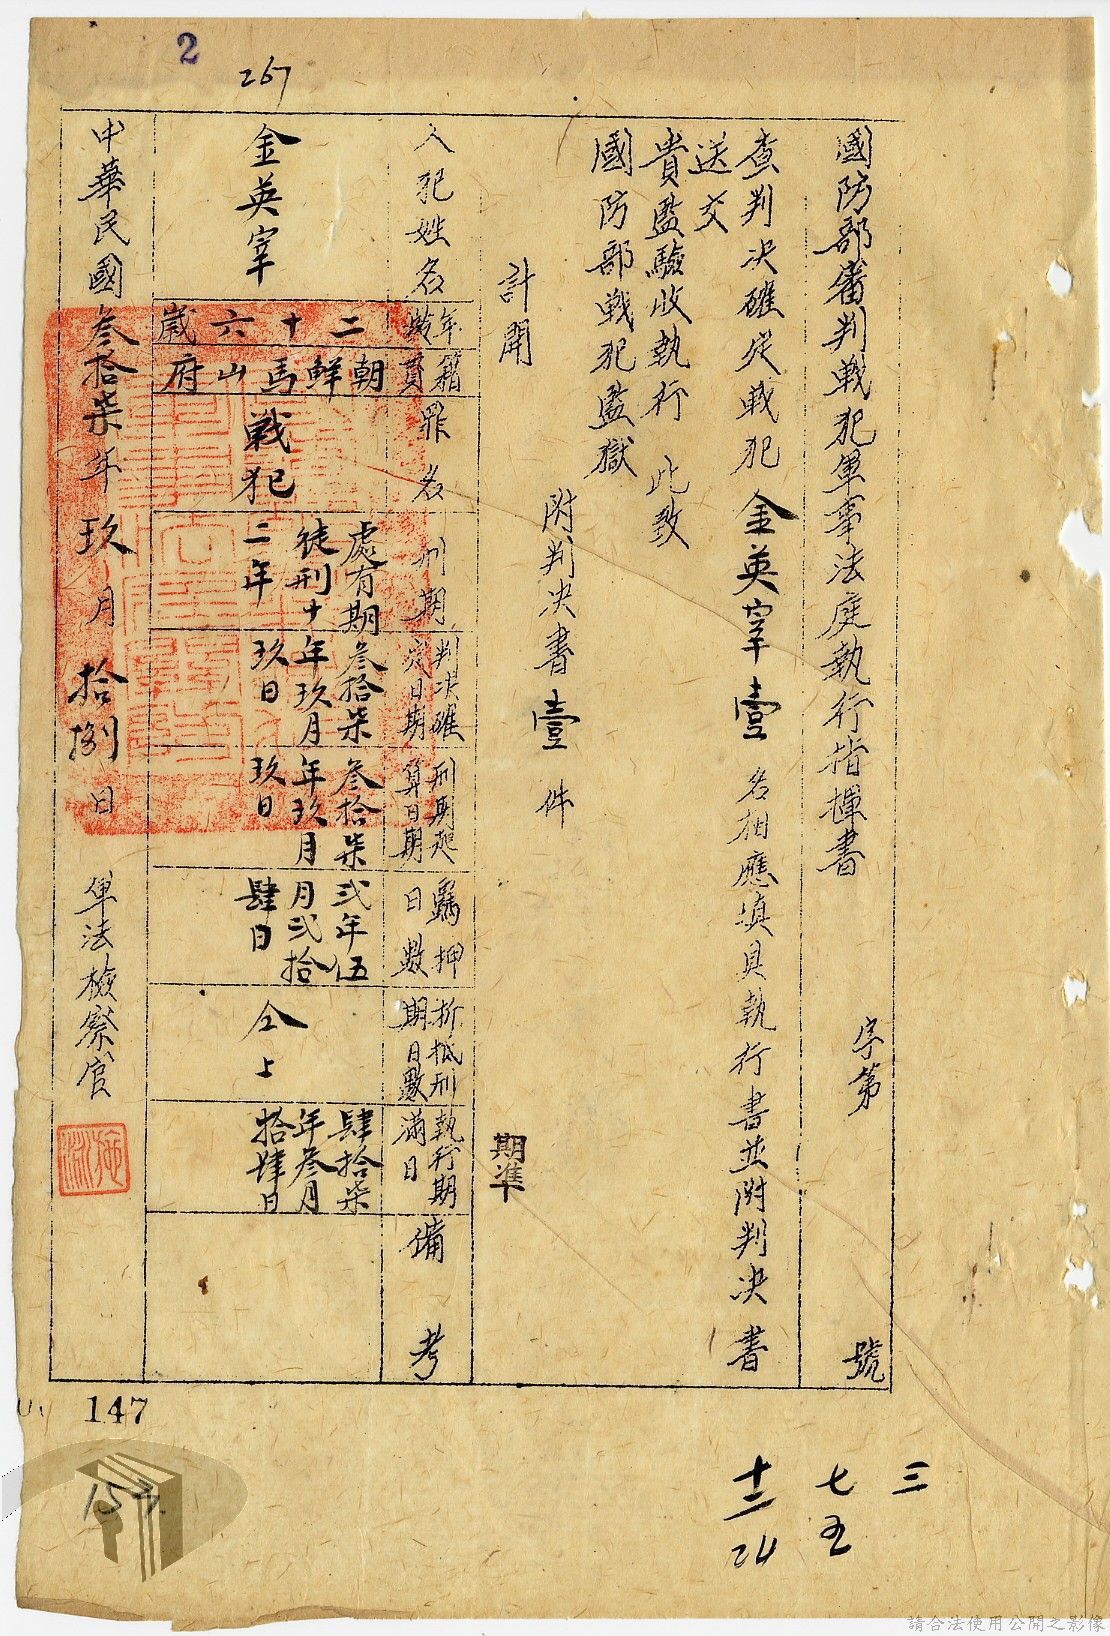 2
267
國防部審判戰犯軍事法庭執行指揮書　字第　號
查判決確定戰犯金英宰壹名相應填具執行書並附判決書
送交
貴監驗收執行　此致
國防部戰犯監獄
附判決書壹件
計開
期準
人犯姓名
年齡
籍貫
罪名
刑期
判決確定日期
刑期起算日期
羈押日數
折抵刑期日數
執行期滿日
備考
金英宰
二十六歲
朝鮮馬山府
戰犯
處有期徒刑十二年
叁拾柒年玖月玖日
叁拾柒年玖月玖日
弍年伍月弍拾肆日
仝上
肆拾柒年叁月拾肆日
中華民國叁拾柒年玖月拾捌日　軍法檢察官
147
157
三
七五
十二24
請合法使用公開之影像